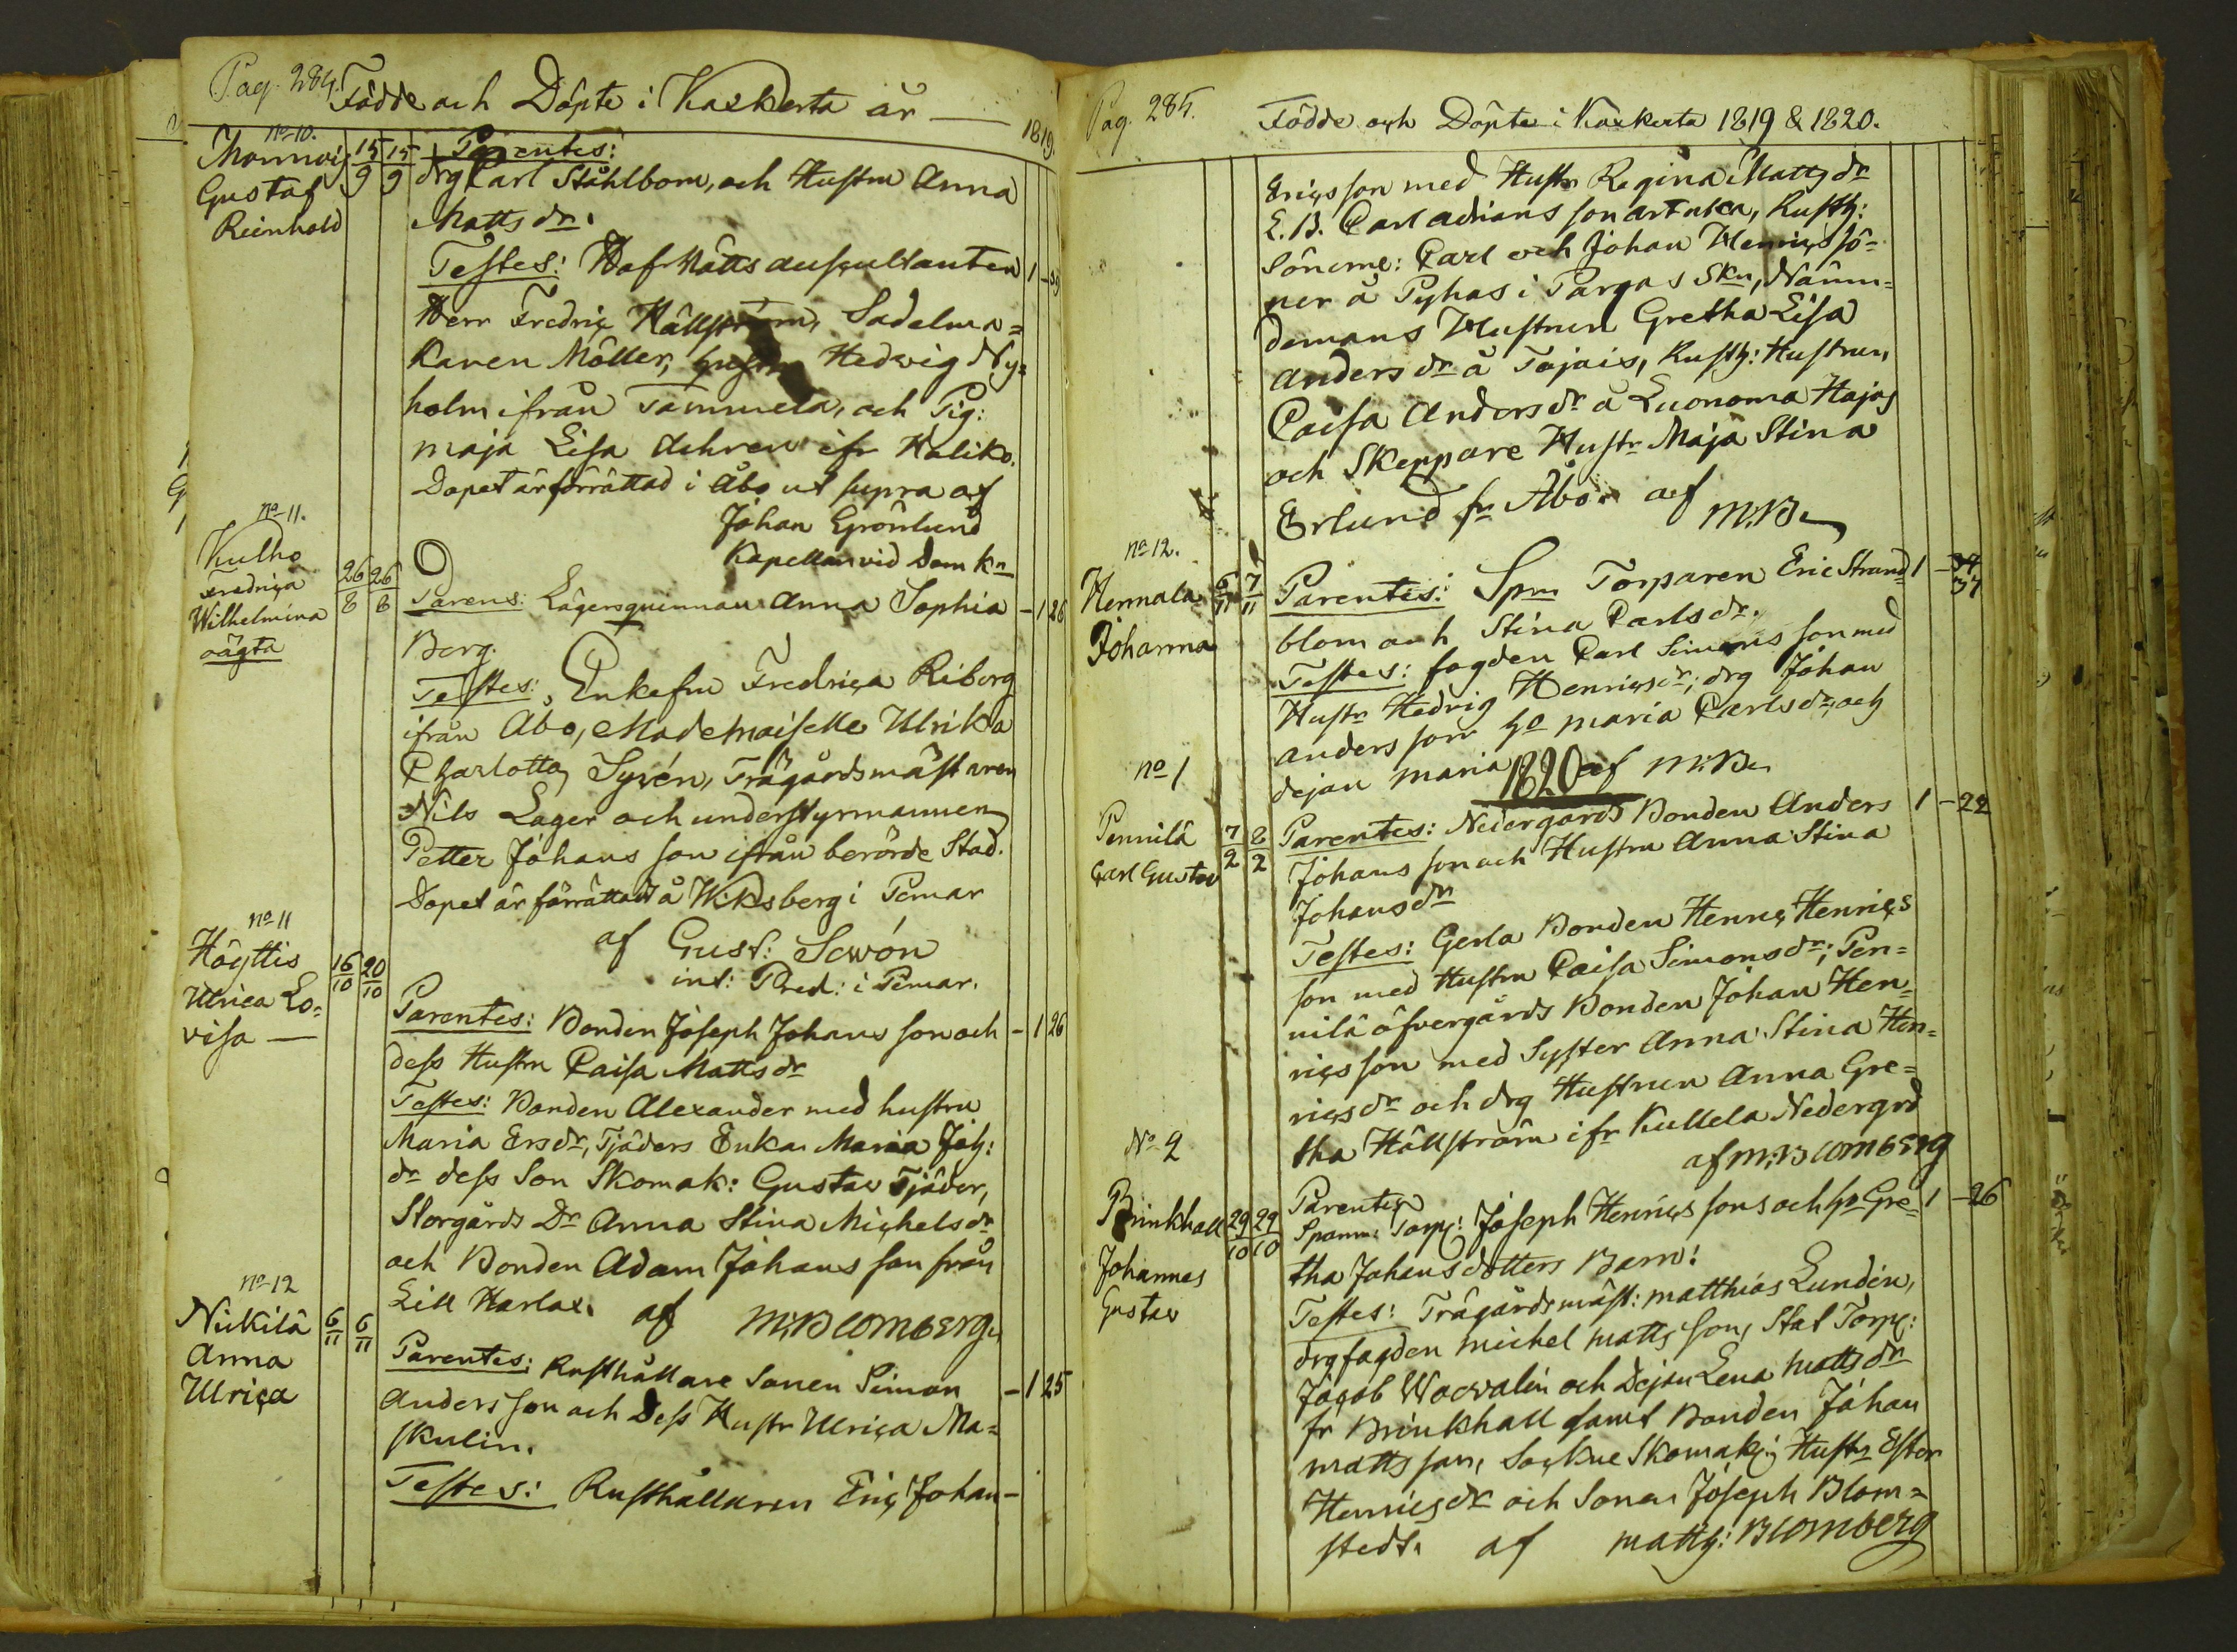 Pag. 284.
Födde och Döpte i Kaskerta år — 1819.
no 10.
Monnois 15/9 15/9 Parentes:
Gustaf drg Carl Ståhlbom, och Hustru Anna
Reinhold Matts dr.
Testes: Hofrätts auscultanten 1 - 39
Herr Fredriç Hällström, Sadelma=
karen Möller, Hustru Hedvig Ny=
holm ifrån Tammela, och Pig:
maja Lisa Achren ifr Haliko.
Dopet är förrättad i Åbo ut supra af
Johan Grönlund
Kapellan vid Dom kn
no 11.
Kulho
Fredriça 26/8 26/8 Parens: Lägersquinnan Anna Sophia - 1 26
Wilhelmina
oägta Berg.
Testes: Enkefru Fredriça Riborg
ifrån Abo, Mademoiselle Ulrika
Charlotta Syrén, Trägårdsmästaren
Nils Lager och understyrmannen
Petter Johans son ifrån berörde Stad.
Dopet är förrättad å Wiksberg i Pemar
af Gust: Scwón
ins: Pred: i Pemar.
no 11
Höyttis 16/10 20/10
Ulrica Lo= Parentes: Bonden Joseph Johans son och - 1 26
visa — dess Hustru Caisa Matts dr
Testes: Bonden Alexander med hustru
Maria Ersdr, Tjäders Enka Maria Joh:
dr dess Son Skomak: Gustav Tjäder,
Storgårds Dr Anna Stina Michelsdr
och Bonden Adam Johans son från
Lill Harlax. af M. Blomberg.
no 12
Niikilä 6/11 6/11
Anna Parentes: Rusthållare Sonen Simon - 1 25
Ulriça Anders son och Dess Hustr Ulriça Ma=
skulin.
Testes: Rusthållaren Eriç Johan-
Pag. 285.
Födde och Döpte i Kaskerta 1819 & 1820.
Eriçsson med Hustr Regina Mattsdr
E. B. Carl adrians son artukca, Rusth:
Sönerne: Carl och Johan Henriçs sö=
ner å Pyhas i Pargas Skn, Nämn=
demans Hustrun Gretha Lisa
Andersdr å Tojais, Rusth: Hustrun,
Caisa Andersdr å Luonoma Hajas
och Skeppare Hustr Maja Stina
Erlund fr Åbo. af M. B.
no 12.
Hermala 6/11 7/11 Parentes: Spm Torparen Eric Strand= 1 - 34
37
Johanna blom och Stina Carlsdr.
Testes: fogden Carl Simons son med
Hustr Hedvig Henriçsdr; drg Johan
anders son ho maria Carlsdr, och
dejan maria af M. B.
1820
no 1
Pennilä 7/2 8/2 Parentes: Nedergårds Bonden Anders 1 - 22
Carl Gustav Johans son och Hustru Anna Stina
Johansdr
Testes: Gerla Bonden Henriç Henriçs
son med Hustru Caisa Simonsdr; Pen=
nilä öfvergårds Bonden Johan Hen=
riçs son med Syster Anna Stina Hen=
riçsdr och drg Hustrun Anna Gre=
tha Hällström ifr Kullela Nedergrd
af M. Blomberg
No 2
Brinkhall 29/10 29/10 Parentes
Spanm: Torp: Joseph Henriçs sons och ho Gre= 1 - 26
Johannes tha Johansdotters Barn:
Gustav Testes: Trägårdsmäst: matthias Lundén,
drgfogden michel matts son, Stat Torp:
Jacob Wocvalin och Dejan Lena mattsdr
fr Brinkhall samt Bonden Johan
matts son, Sockne Skomak: Hustr Ester
Henricsdr och Sonen Joseph Blom=
stedt. af Matth: Blomberg